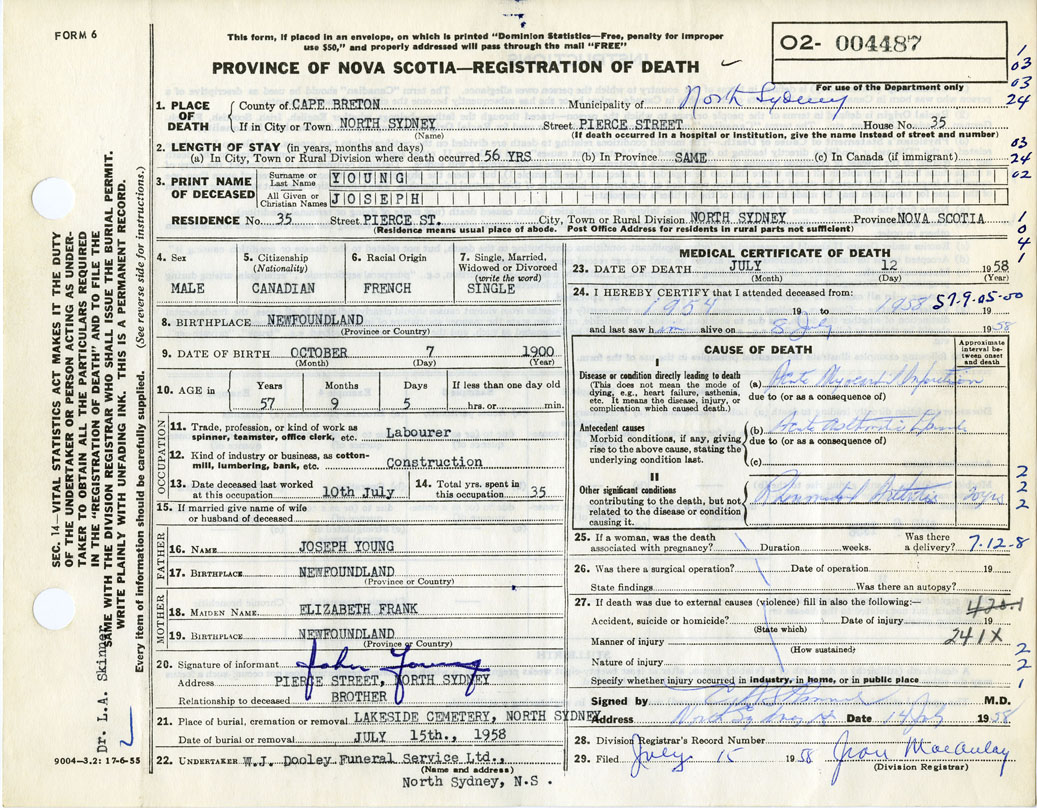 FORM 6
This form, if placed in an envelope, on which is printed "Dominion Statistics—Free, penalty for improper
use $50," and properly addressed will pass through the mail "FREE"
O2- 004487
For use of the Department only
PROVINCE OF NOVA SCOTIA—REGISTRATION OF DEATH
1
03
03
24
03
24
02
1
0
4
1
1. PLACE OF DEATH
County of CAPE BRETON Municipality of North Sydney
If in City or Town NORTH SYDNEY Street PIERCE STREET House No. 35
(Name) (If death occurred in a hospital or institution, give the name instead of street and number)
2. LENGTH OF STAY (in years, months and days)
(a) In City, Town or Rural Division where death occurred 56 YRS (b) In Province SAME (c) In Canada (if immigrant)
3. PRINT NAME OF DECEASED
Surname or Last Name YOUNG
All Given or Christian Names JOSEPH
RESIDENCE No. 35 Street PIERCE ST. City, Town or Rural Division NORTH SYDNEY Province NOVA SCOTIA
(Residence means usual place of abode. Post Office Address for residents in rural parts not sufficient)
4. Sex
MALE
5. Citizenship
(Nationality)
CANADIAN
6. Racial Origin
FRENCH
7. Single, Married,
Widowed or Divorced
(write the word)
SINGLE
8. BIRTHPLACE NEWFOUNDLAND
(Province or Country)
9. DATE OF BIRTH OCTOBER 7 1900
(Month) (Day) (Year)
10. AGE in
Years Months Days If less than one day old
57 9 5 hrs. or min.
OCCUPATION
11. Trade, profession, or kind of work as
spinner, teamster, office clerk, etc. Labourer
12. Kind of industry or business, as cotton-
mill, lumbering, bank, etc. Construction
13. Date deceased last worked
at this occupation 10th July
14. Total yrs. spent in
this occupation 35
15. If married give name of wife
or husband of deceased
FATHER
16. NAME JOSEPH YOUNG
17. BIRTHPLACE NEWFOUNDLAND
(Province or Country)
MOTHER
18. MAIDEN NAME ELIZABETH FRANK
19. BIRTHPLACE NEWFOUNDLAND
(Province or Country)
20. Signature of informant John Young
Address PIERCE STREET, NORTH SYDNEY
Relationship to deceased BROTHER
21. Place of burial, cremation or removal LAKESIDE CEMETERY, NORTH SYDNEY
Date of burial or removal JULY 15th., 1958
22. UNDERTAKER W.J. Dooley Funeral Service Ltd.,
(Name and address)
North Sydney, N.S.
MEDICAL CERTIFICATE OF DEATH
23. DATE OF DEATH JULY 12 1958
(Month) (Day) (Year)
24. I HEREBY CERTIFY that I attended deceased from:
1954 19 to 1958 19
57.9.05-00
and last saw him alive on 8 July 1958
CAUSE OF DEATH
Approximate
interval be-
tween onset
and death
I
Disease or condition directly leading to death
(This does not mean the mode of
dying, e.g., heart failure, asthenia,
etc. It means the disease, injury, or
complication which caused death.)
(a) Acute Myocard Infarction
due to (or as a consequence of)
Antecedent causes
Morbid conditions, if any, giving
rise to the above cause, stating the
underlying condition last.
(b) Acute Asthmatic
due to (or as a consequence of)
(c)
II
Other significant conditions
contributing to the death, but not
related to the disease or condition
causing it.
Rheumatoid Arthritis 20 yrs
2
2
2
25. If a woman, was the death
associated with pregnancy? Duration weeks. Was there
a delivery? 7.12.8
26. Was there a surgical operation? Date of operation 19
State findings Was there an autopsy?
27. If death was due to external causes (violence) fill in also the following:— 420.1
Accident, suicide or homicide? Date of injury 19
(State which) 241X
Manner of injury
(How sustained)
2
Nature of injury
2
Specify whether injury occurred in industry, in home, or in public place
1
Signed by M.D.
Address North Sydney NS Date 14 July 1958
28. Division Registrar's Record Number
29. Filed July 15 1958 Jean MacAulay
(Division Registrar)
SEC. 14. VITAL STATISTICS ACT MAKES IT THE DUTY
OF THE UNDERTAKER OR PERSON ACTING AS UNDER-
TAKER TO OBTAIN ALL THE PARTICULARS REQUIRED
IN THE "REGISTRATION OF DEATH" AND TO FILE THE
SAME WITH THE DIVISION REGISTRAR WHO SHALL ISSUE THE BURIAL PERMIT.
WRITE PLAINLY WITH UNFADING INK. THIS IS A PERMANENT RECORD.
Every item of information should be carefully supplied. (See reverse side for instructions.)
Dr. L.A. Skinner
9004—3.2: 17-6-55